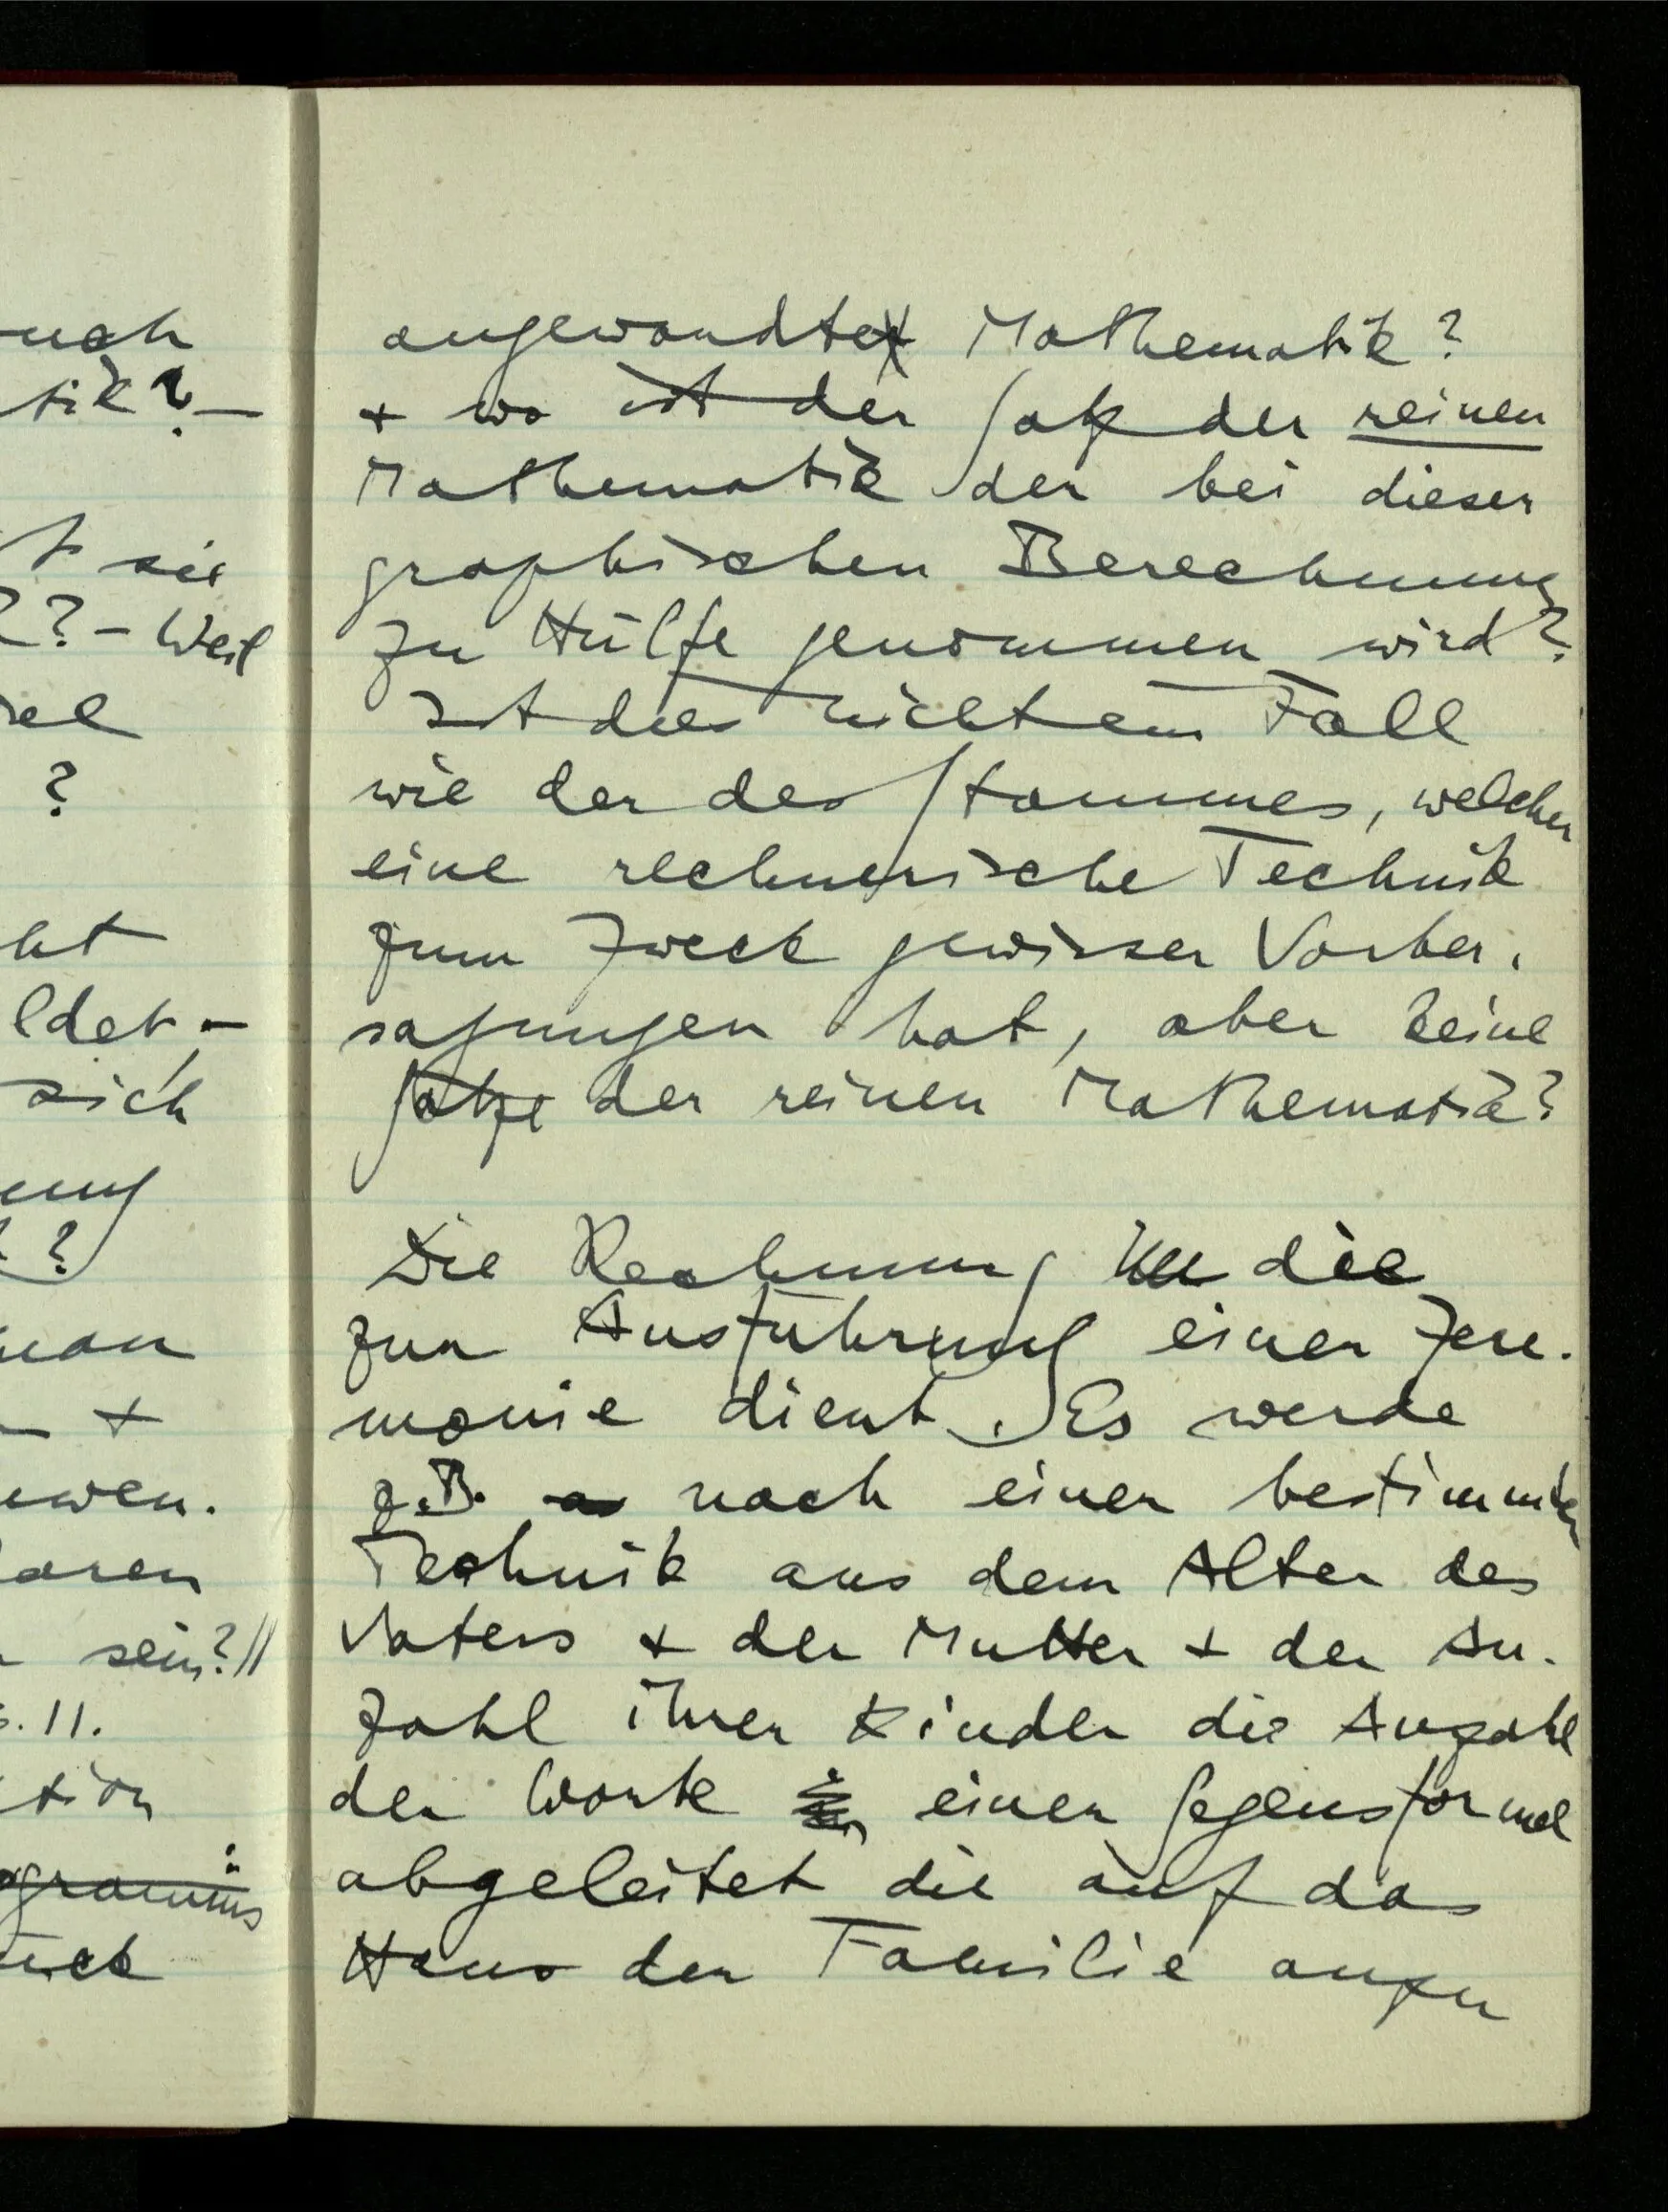 uch
tik? –
t sie
?? – Weil
el
?
ht
ldet –
sich
ung
??
man
+
uwen.
aren
sein? //
.11.
tion
gramms
angewandte Mathematik?
+ wo ist der Satz der reinen
Mathematik der bei dieser
graphischen Berechnung
zu Hülfe genommen wird?
Ist dies nicht ein Fall
wie der des Stammes, welcher
eine rechnerische Technik
zum Zweck gewisser Vorher-
sagungen hat, aber keine
Sätze der reinen Mathematik?
Die Rechnung die
zur Ausführung einer Zere-
monie dient. Es werde
z.B. nach einer bestimmten
Technik aus dem Alter des
Vaters + der Mutter + der An-
zahl ihrer Kinder die Anzahl
der Worte einer Segensformel
abgeleitet die auf das
Haus der Familie